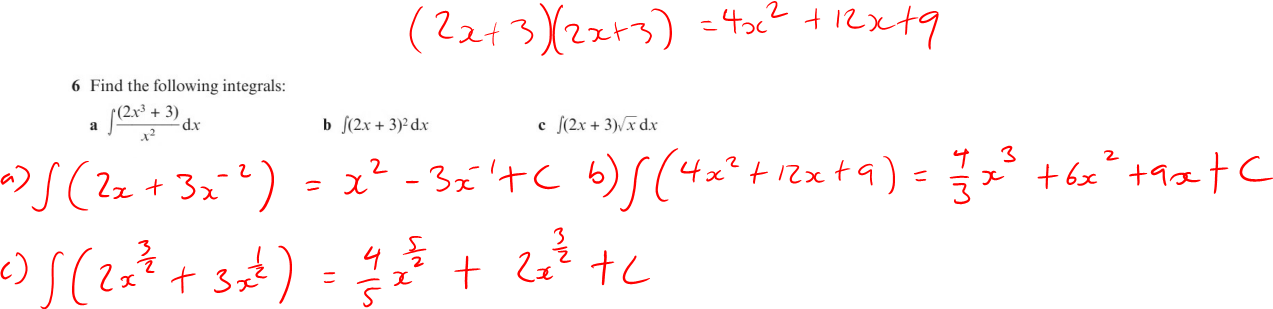 (2x+3)(2x+3) = 4x² + 12x + 9
6 Find the following integrals:
a ∫(2x³ + 3)/x² dx b ∫(2x + 3)² dx c ∫(2x + 3)√x dx
a) ∫(2x + 3x⁻²) = x² - 3x⁻¹ + C b) ∫(4x² + 12x + 9) = 4/3 x³ + 6x² + 9x + C
c) ∫(2x^(3/2) + 3x^(1/2)) = 4/5 x^(5/2) + 2x^(3/2) + C